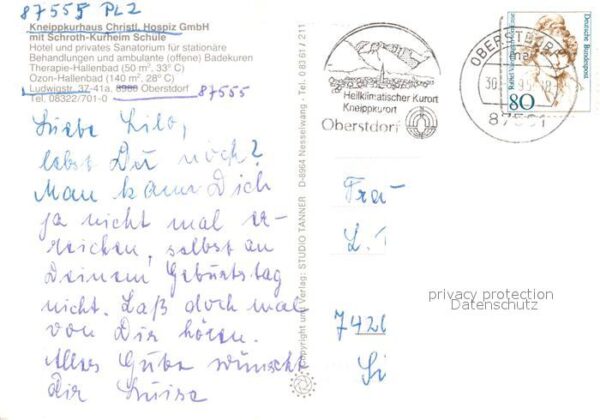 87555 PLZ
Kneippkurhaus Christl. Hospiz GmbH
mit Schroth-Kurheim Schüle
Hotel und privates Sanatorium für stationäre
Behandlungen und ambulante (offene) Badekuren
Therapie-Hallenbad (50 m², 33° C)
Ozon-Hallenbad (140 m², 28° C)
Ludwigstr. 37-41a, 8980 Oberstdorf 87555
Tel. 08322/701-0
Liebe Lilo,
lebst Du noch?
Man kann Dich
ja nicht mal er-
reichen, selbst an
Deinem Geburtstag
nicht. Laß doch mal
von Dir hören.
Alles Gute wünscht
Dir Luise
Copyright und Verlag: STUDIO TANNER · D-8964 Nesselwang · Tel. 0 83 61 / 211
Heilklimatischer Kurort
Kneippkurort
Oberstdorf
OBERSTDORF
87561
Deutsche Bundespost
80
Frau
L.
7420
Si
privacy protection
Datenschutz